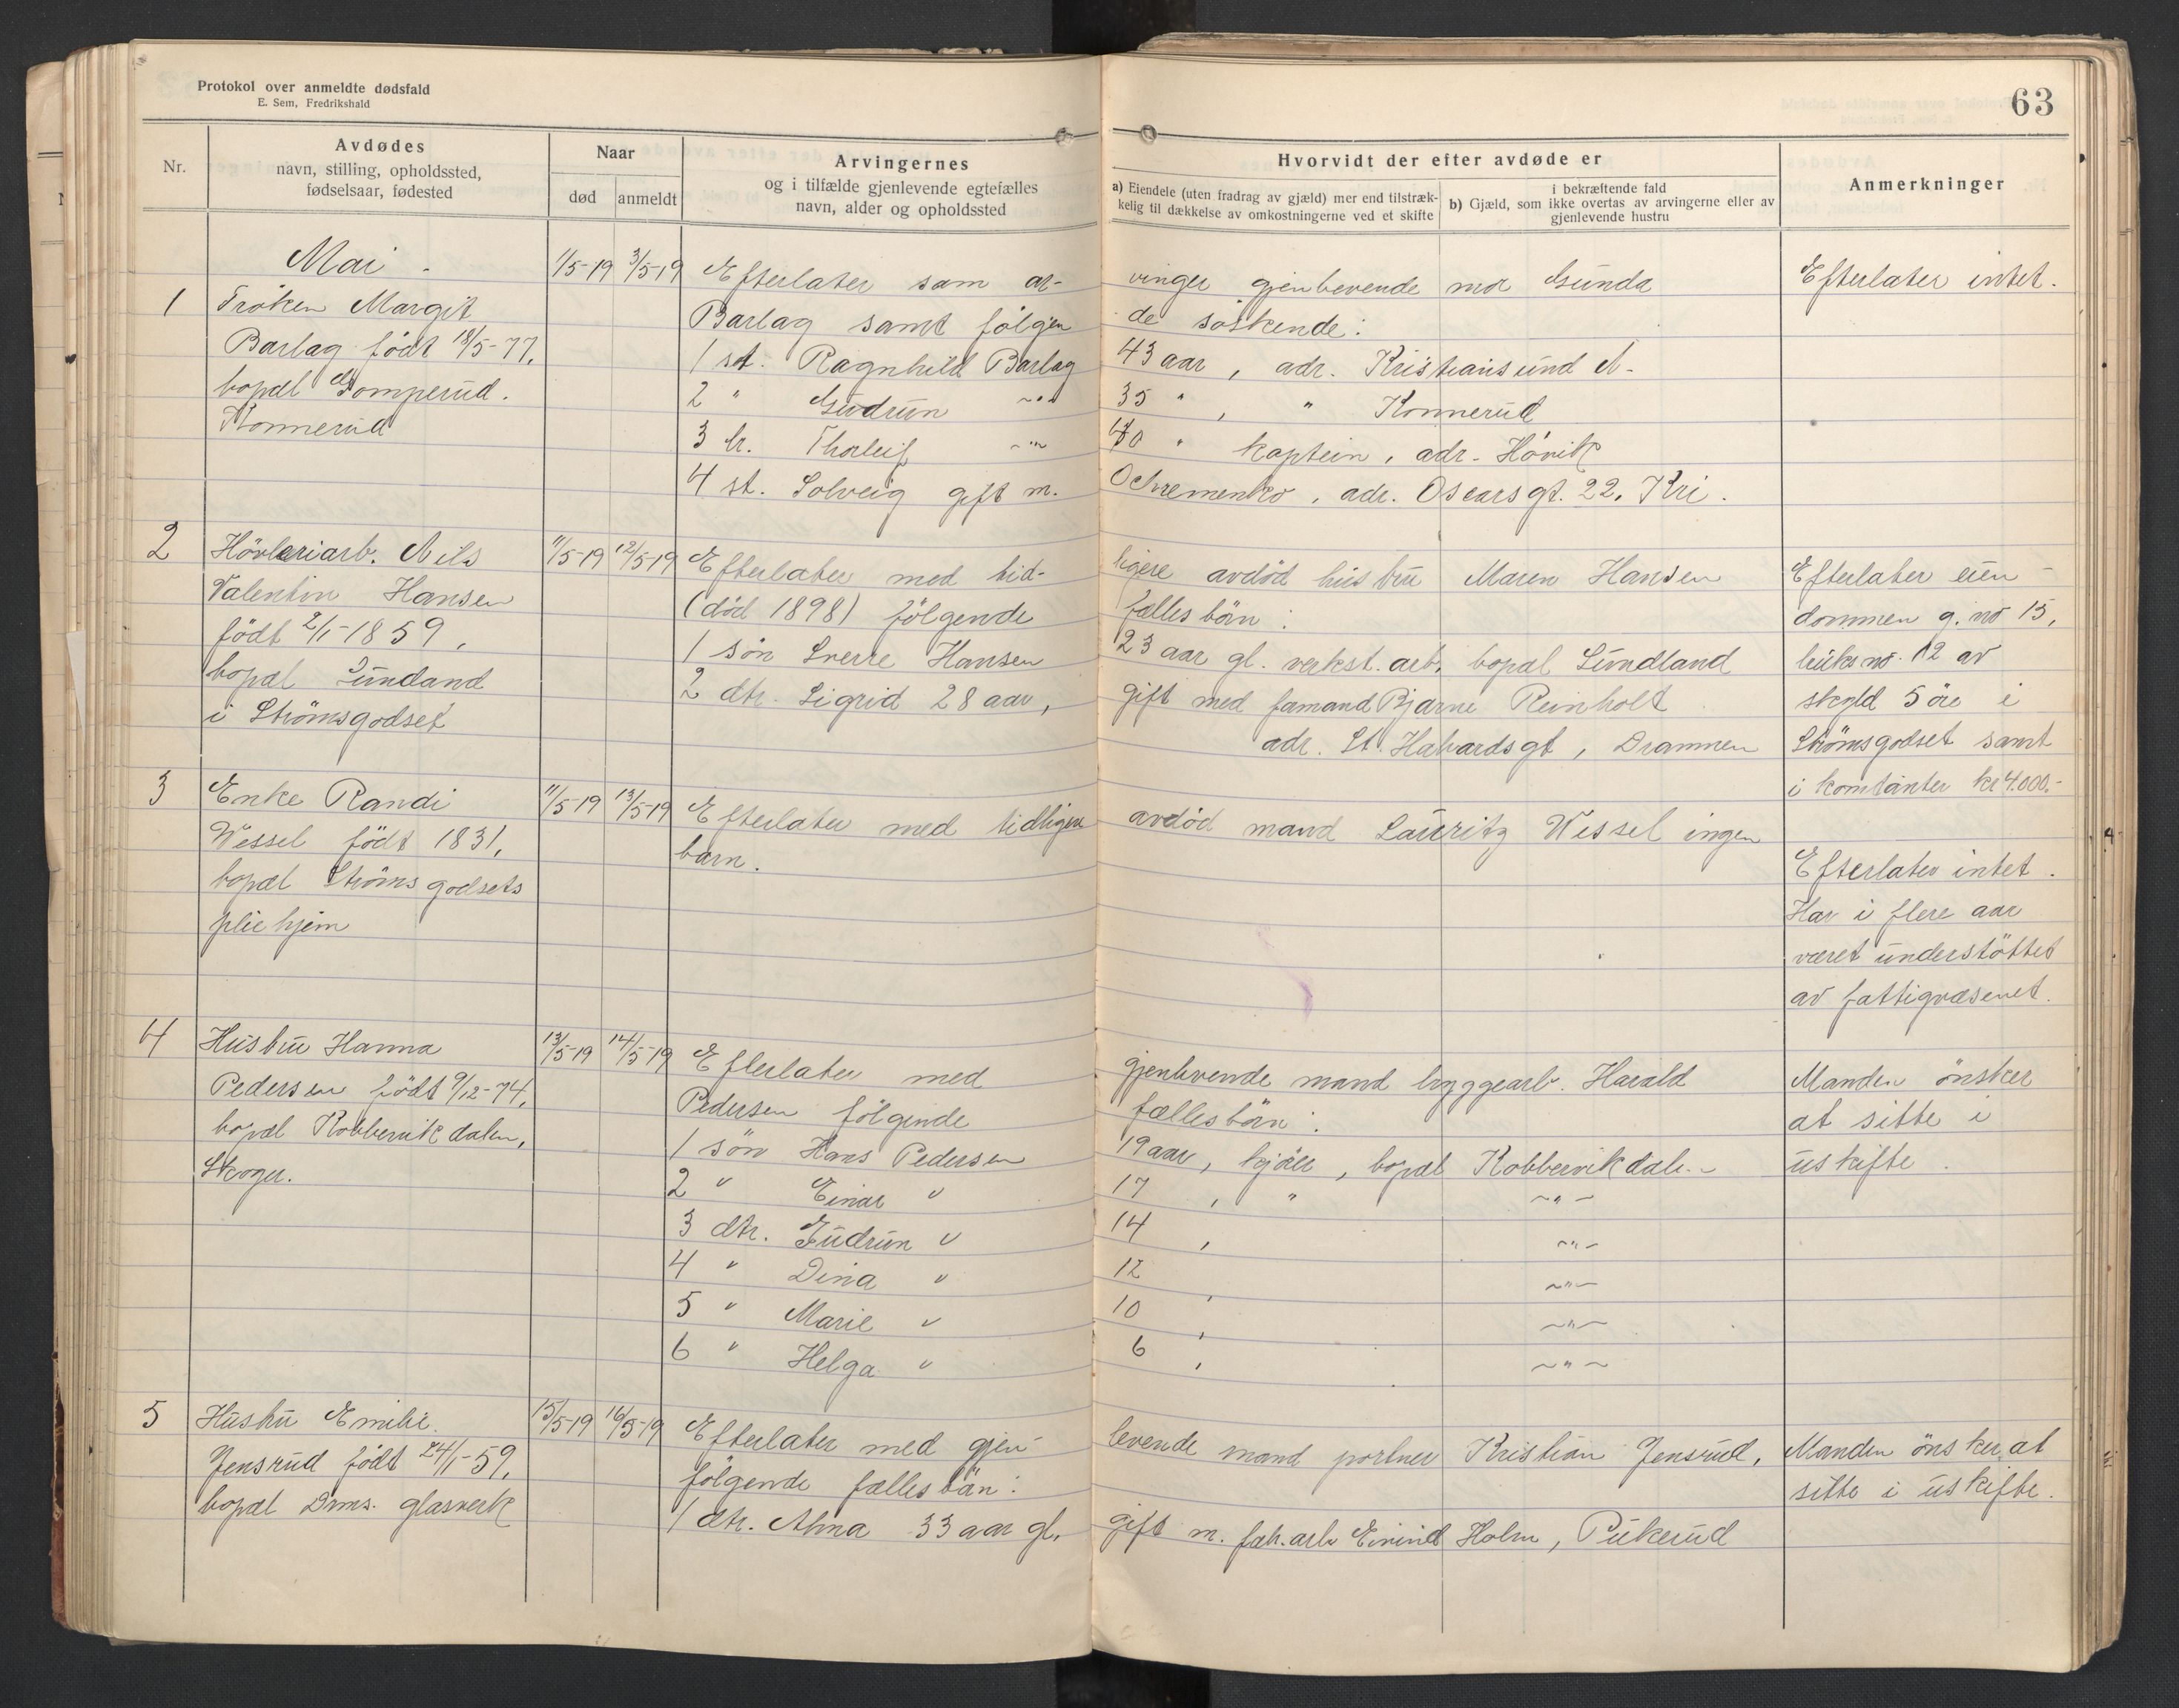 Protokol over anmeldte dødsfald
E. Sem, Fredrikshald
63
Nr.
Avdødes
navn, stilling, opholdssted,
fødselsaar, fødested
Naar
død
anmeldt
Arvingernes
og i tilfælde gjenlevende egtefælles
navn, alder og opholdssted
Hvorvidt der efter avdøde er
a) Eiendele (uten fradrag av gjæld) mer end tilstræk-
kelig til dækkelse av omkostningerne ved et skifte
i bekræftende fald
b) Gjæld, som ikke overtas av arvingerne eller av
gjenlevende hustru
Anmerkninger
Mai.
1
Frøken Margit
Barlag født 18/5-77,
bopæl Gomperud.
Konnerud
1/5-19 3/5-19
Efterlater som ar- vinger gjenlevende mor Gunda
Barlag samt følgen de søskende:
1 st. Ragnhild Barlag 43 aar, adr. Kristiansund N.
2 " Gudrun ~"~ 35 ", " Konnerud
3 br. Thorleif ~"~ 40 " kaptein, adr. Høvik
4 st. Solveig gift m. Ochremenko, adr. Oscarsgt. 22. Kri.
Efterlater intet.
2
Høvleriarb. Nils
Valentin Hansen
født 2/1-1859,
bopæl Sundland
i Strømsgodset
11/5-19 12/5-19
Efterlater med tid- ligere avdød hustru Maren Hansen
(død 1898) følgende fællesbørn:
1 søn Sverre Hansen 23 aar gl. verkst. arb. bopæl Sundland
2 dtr. Sigrid 28 aar, gift med formand Bjarne Reinholt
adr. St. Halvardsgt, Drammen
Efterlater eien-
dommen g. no 15,
bruks no. 12 av
skyld 5 øre i
Strømsgodset samt
i kontanter kr 4.000.-
3
Enke Randi
Wessel født 1831,
bopæl Strømsgodsets
pliehjem
11/5-19 13/5-19
Efterlater med tidligere avdød mand Lauritz Wessel ingen
barn.
Efterlater intet.
Har i flere aar
været understøttet
av fattigvæsenet.
4
Hustru Hanna
Pedersen født 9/12-74,
bopæl Kobbervikdalen,
Skoger.
13/5-19 14/5-19
Efterlater med gjenlevende mand bryggearb. Harald
Pedersen følgende fællesbørn:
1 søn Hans Pedersen 19 aar, kjører, bopæl Kobbervikdalen
2 " Einar " 17, " ~"~
3 dtr. Gudrun " 14, ~"~
4 " Dina " 12, ~"~
5 " Marie " 10, ~"~
6 " Helga " 6, ~"~
Manden ønsker
at sitte i
uskifte.
5
Hustru Emilie
Jensrud født 24/1-59,
bopæl Dms. glasverk
15/5-19 16/5-19
Efterlater med gjen- levende mand portner Kristian Jensrud,
følgende fællesbørn:
1 dtr. Alma 33 aar gl. gift m. fab.arb. Eivind Holm, Pukerud
Manden ønsker at
sitte i uskifte.